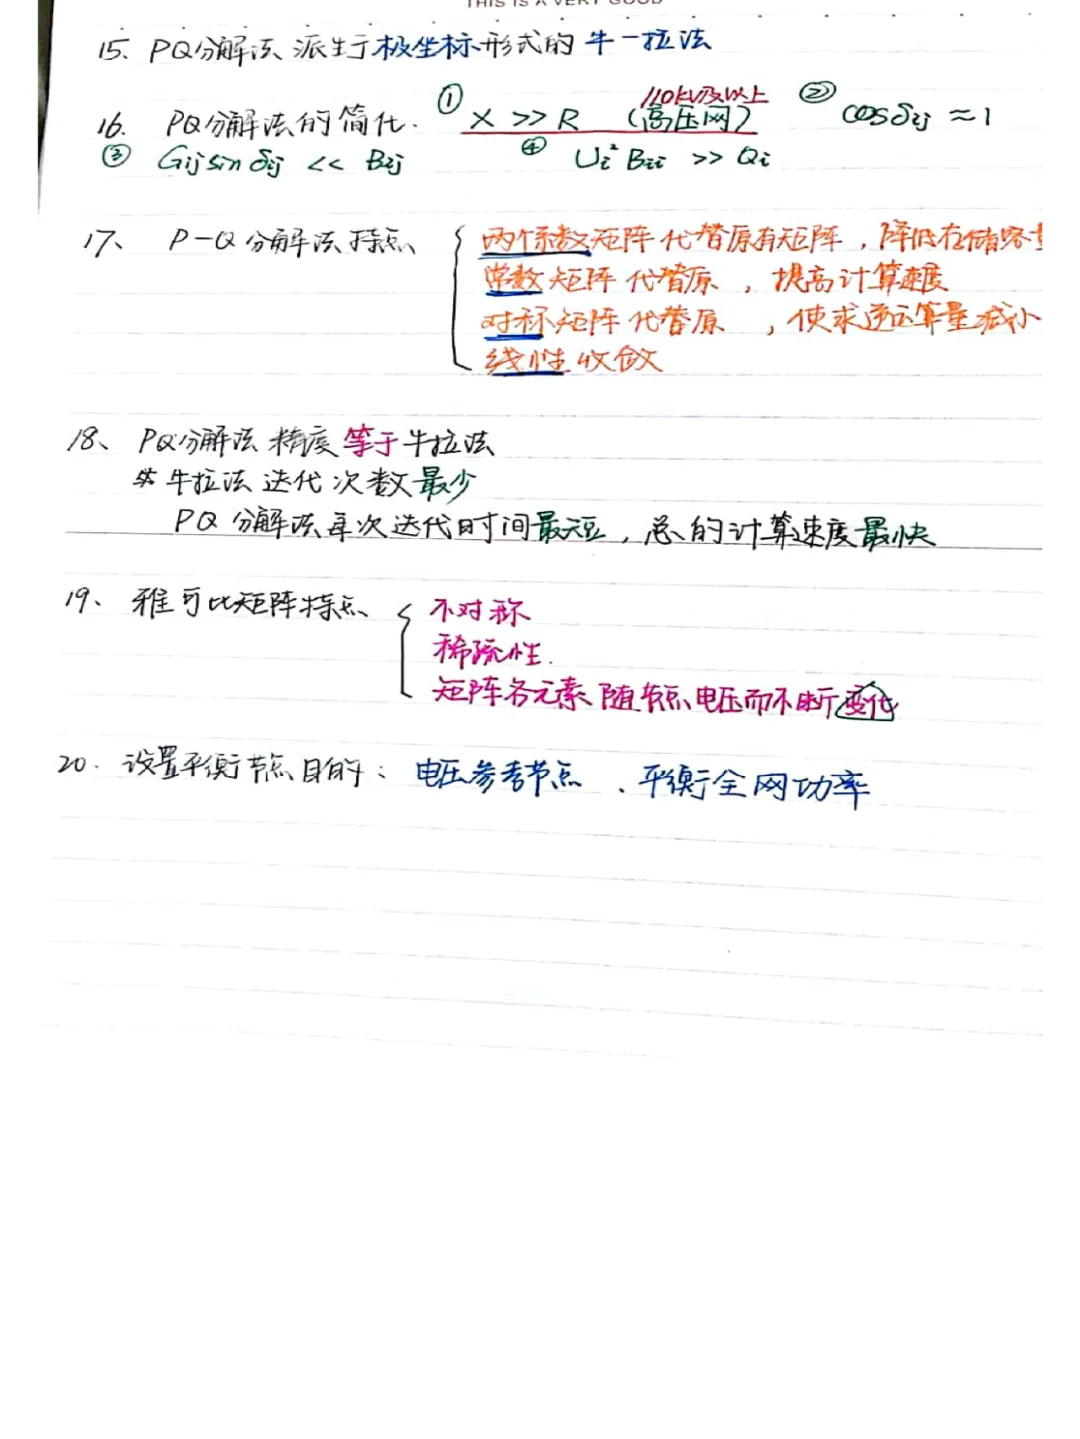 THIS IS A VERY GOOD
15、PQ分解法 派生于极坐标形式的 牛一拉法
16. PQ分解法的简化. ① X >> R (高压网) 110kV及以上 ② cosδij ≈ 1
③ Gijsinδij << Bij ④ Ui²Bii >> Qi
17、 P-Q分解法特点 两个系数矩阵代替原有矩阵，降低存储容量
常数矩阵代替原 ，提高计算速度
对称矩阵代替原 ，使求逆运算量减小
线性收敛
18、 PQ分解法 精度等于牛拉法
牛拉法 迭代次数最少
PQ分解法每次迭代时间最短，总的计算速度最快
19、 雅可比矩阵特点 不对称
稀疏性.
矩阵各元素随节点电压而不断变化
20. 设置平衡节点目的： 电压参考节点 、平衡全网功率